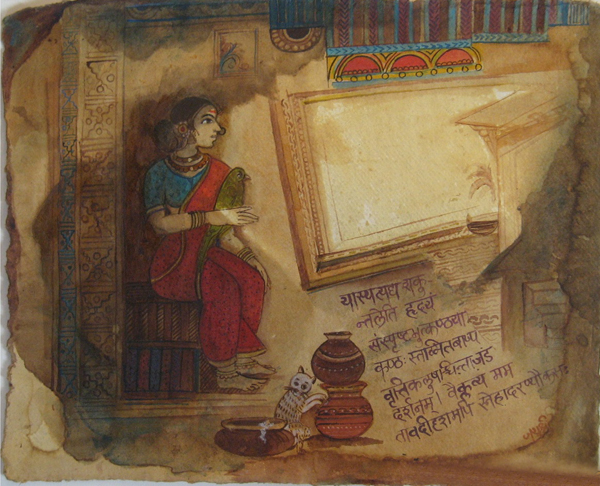 यास्यत्यद्य शकु-
न्तलेति हृदयं
संस्पृष्टमुत्कण्ठया
कण्ठः स्तम्भितबाष्प
वृत्तिकलुषश्चिन्ताजडं
दर्शनम्। वैक्लव्यं मम
तावदीदृशमपि स्नेहादरण्यौकसः